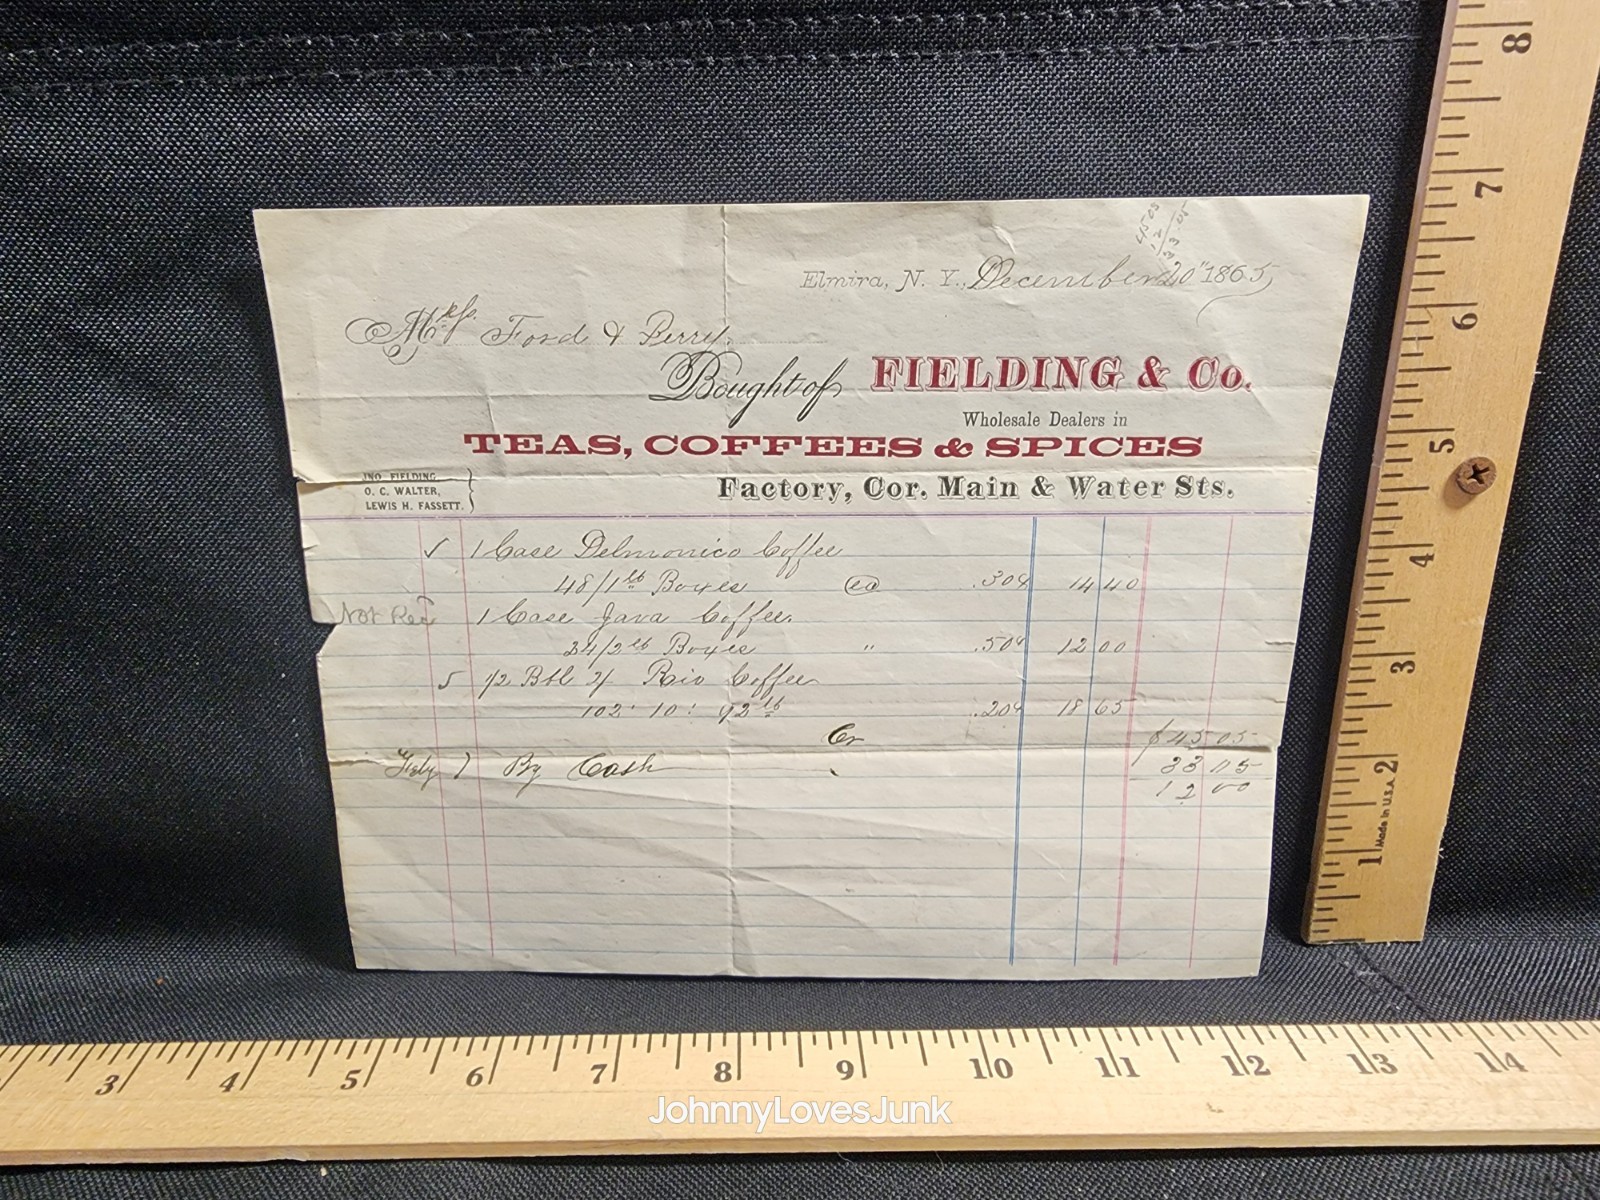 45 05
12
33 05
Elmira, N. Y., December 20" 1865
Mess. Ford & Berry
Bought of FIELDING & Co.
Wholesale Dealers in
TEAS, COFFEES & SPICES
Factory, Cor. Main & Water Sts.
JNO FIELDING,
O. C. WALTER,
LEWIS H. FASSETT.
✓ 1 Case Delmonico Coffee
48/1 lb Boxes ea .30¢ 14 40
Not Rec 1 Case Java Coffee
24/2 lb Boxes " .50¢ 12 00
5 1/2 Bbl Rio Coffee
102 " 10 " 92 lb .20¢ 18 65
$45 05
Cr
July 7 By Cash 33 05
12 00
8
7
6
5
4
3
2
1
Made in U.S.A.
3 4 5 6 7 8 9 10 11 12 13 14
JohnnyLovesJunk